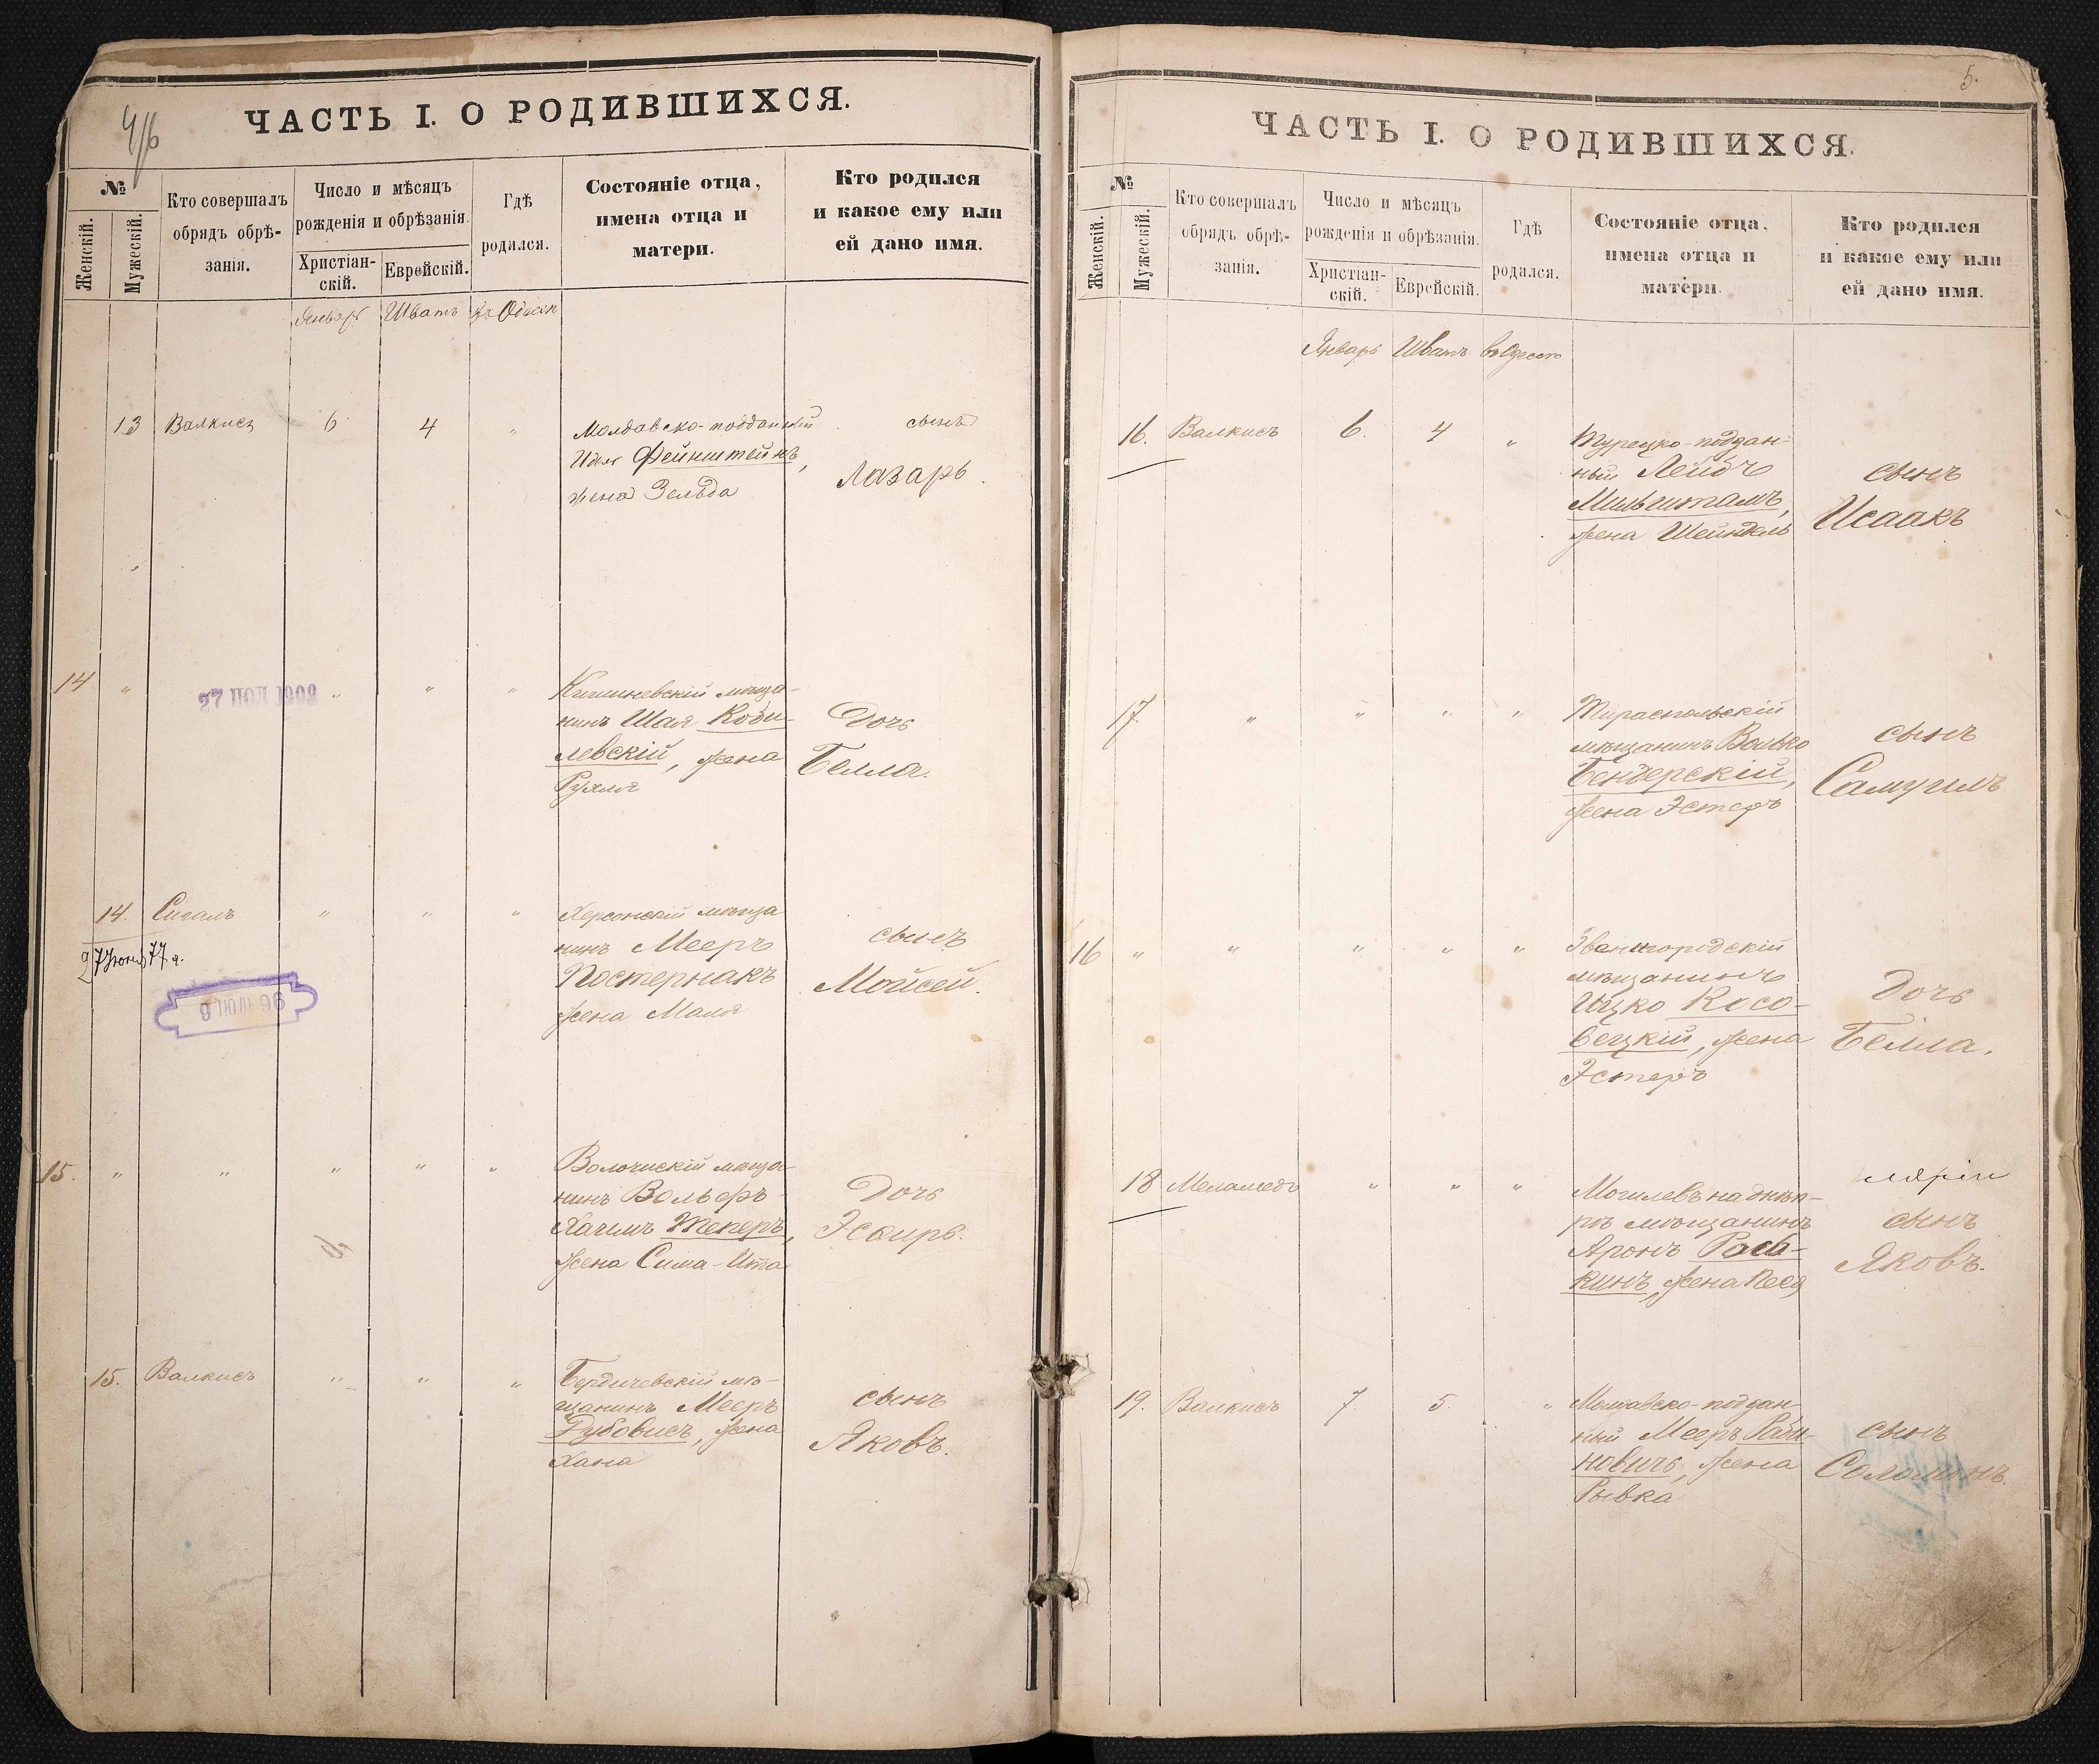 ЧАСТЬ I. О РОДИВШИХСЯ.
№
Женскій.
Мужескій.
Кто совершалъ
обрядъ обрѣ-
занія.
Число и мѣсяцъ
рожденія и обрѣзанія.
Христіан-
скій.
Еврейскій.
Гдѣ
родился.
Состояніе отца,
имена отца и
матери.
Кто родился
и какое ему или
ей дано имя.
Январь Шватъ Въ Одессѣ
13 Валкисъ 6 4 "
Молдавско-подданный
Фейнштейнъ,
жена Зельда
сынъ
Лазарь.
14 " 27 ІЮЛ 1909 " " "
Кишиневскій мѣща-
нинъ Шая Коби-
левскій, жена
Рухля
Дочь
Белла.
14. Сигалъ " " "
27 Іюня 77 г.
Херсонскій мѣща
нинъ Мееръ
Постернакъ
жена Маля
сынъ
Мойсей.
15. " " " " "
Волочискій мѣща-
нинъ Вольфъ-
Хаимъ Текеръ,
жена Сима-Ита
Дочь
Эсѳирь.
15. Валкисъ " " "
Бердичевскій мѣ-
щанинъ Мееръ
Дубовисъ, жена
Хана
сынъ
Яковъ.
5.
ЧАСТЬ I. О РОДИВШИХСЯ.
№
Женскій.
Мужескій.
Кто совершалъ
обрядъ обрѣ-
занія.
Число и мѣсяцъ
рожденія и обрѣзанія.
Христіан-
скій.
Еврейскій.
Гдѣ
родился.
Состояніе отца,
имена отца и
матери.
Кто родился
и какое ему или
ей дано имя.
Январь Шватъ въ Одессѣ
16. Валкисъ 6. 4 "
Турецко-поддан-
ный Лейбъ
Мильштамъ,
жена Шейндель
сынъ
Исаакъ
17. " " " "
Тираспольскій
мѣщанинъ Волько
Бендерскій,
жена Эстеръ
сынъ
Самуилъ
16 " " " " "
Звенигородскій
мѣщанинъ
Ицко Косо-
вецкій, жена
Эстеръ
Дочь
Белла.
18 Меламедъ " " "
Могилевъ на днѣп-
рѣ мѣщанинъ
Аронъ Рась-
кинъ, жена Песя
сынъ
Яковъ.
19. Валкисъ 7. 5. "
Молдавско-поддан-
ный Мееръ Раби-
новичъ, жена
Рывка
сынъ
Соломонъ.